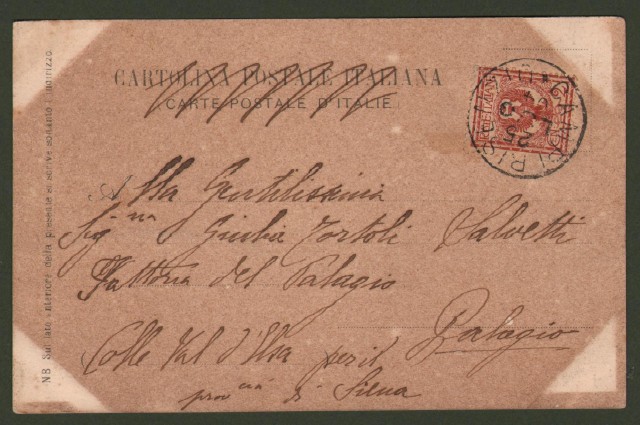 CARTOLINA POSTALE ITALIANA
CARTE POSTALE D'ITALIE
Alla Gentilissima
Signa Giulia Tortoli Salvetti
Fattoria del Palagio
Colle Val d'Elsa per il Palagio
provcia di Siena
NB Sul lato anteriore della presente si scrive soltanto l'indirizzo
25